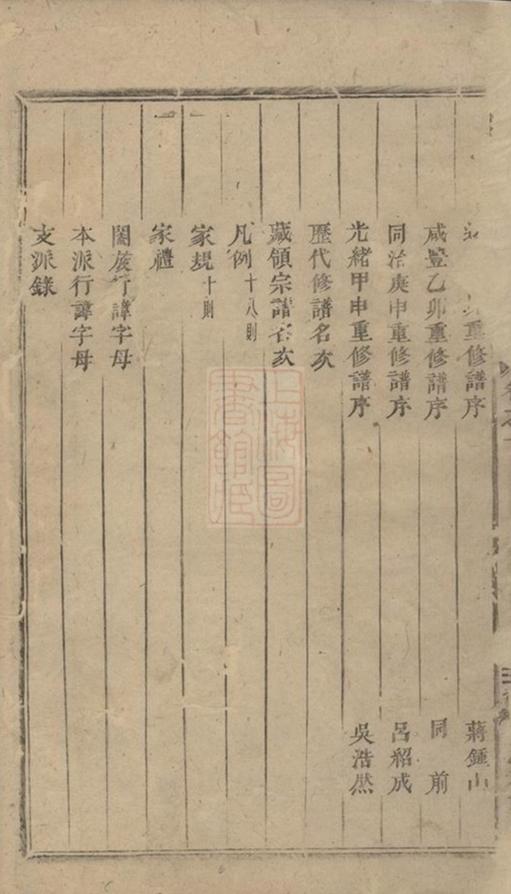 重修譜序 蔣鍾山
咸豐乙卯重修譜序 同前
同治庚申重修譜序 呂紹成
光緒甲申重修譜序 吳浩然
歷代修譜名亥
藏領宗譜名亥
凡例十八則
家規十則
家禮
闔族行諱字母
本派行諱字母
支派錄
上海圖書館藏